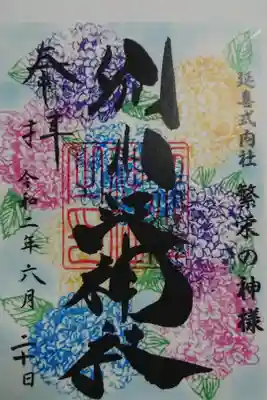 延喜式内社 繁栄の神様
別小江神社
奉拝 令和二年六月二十日